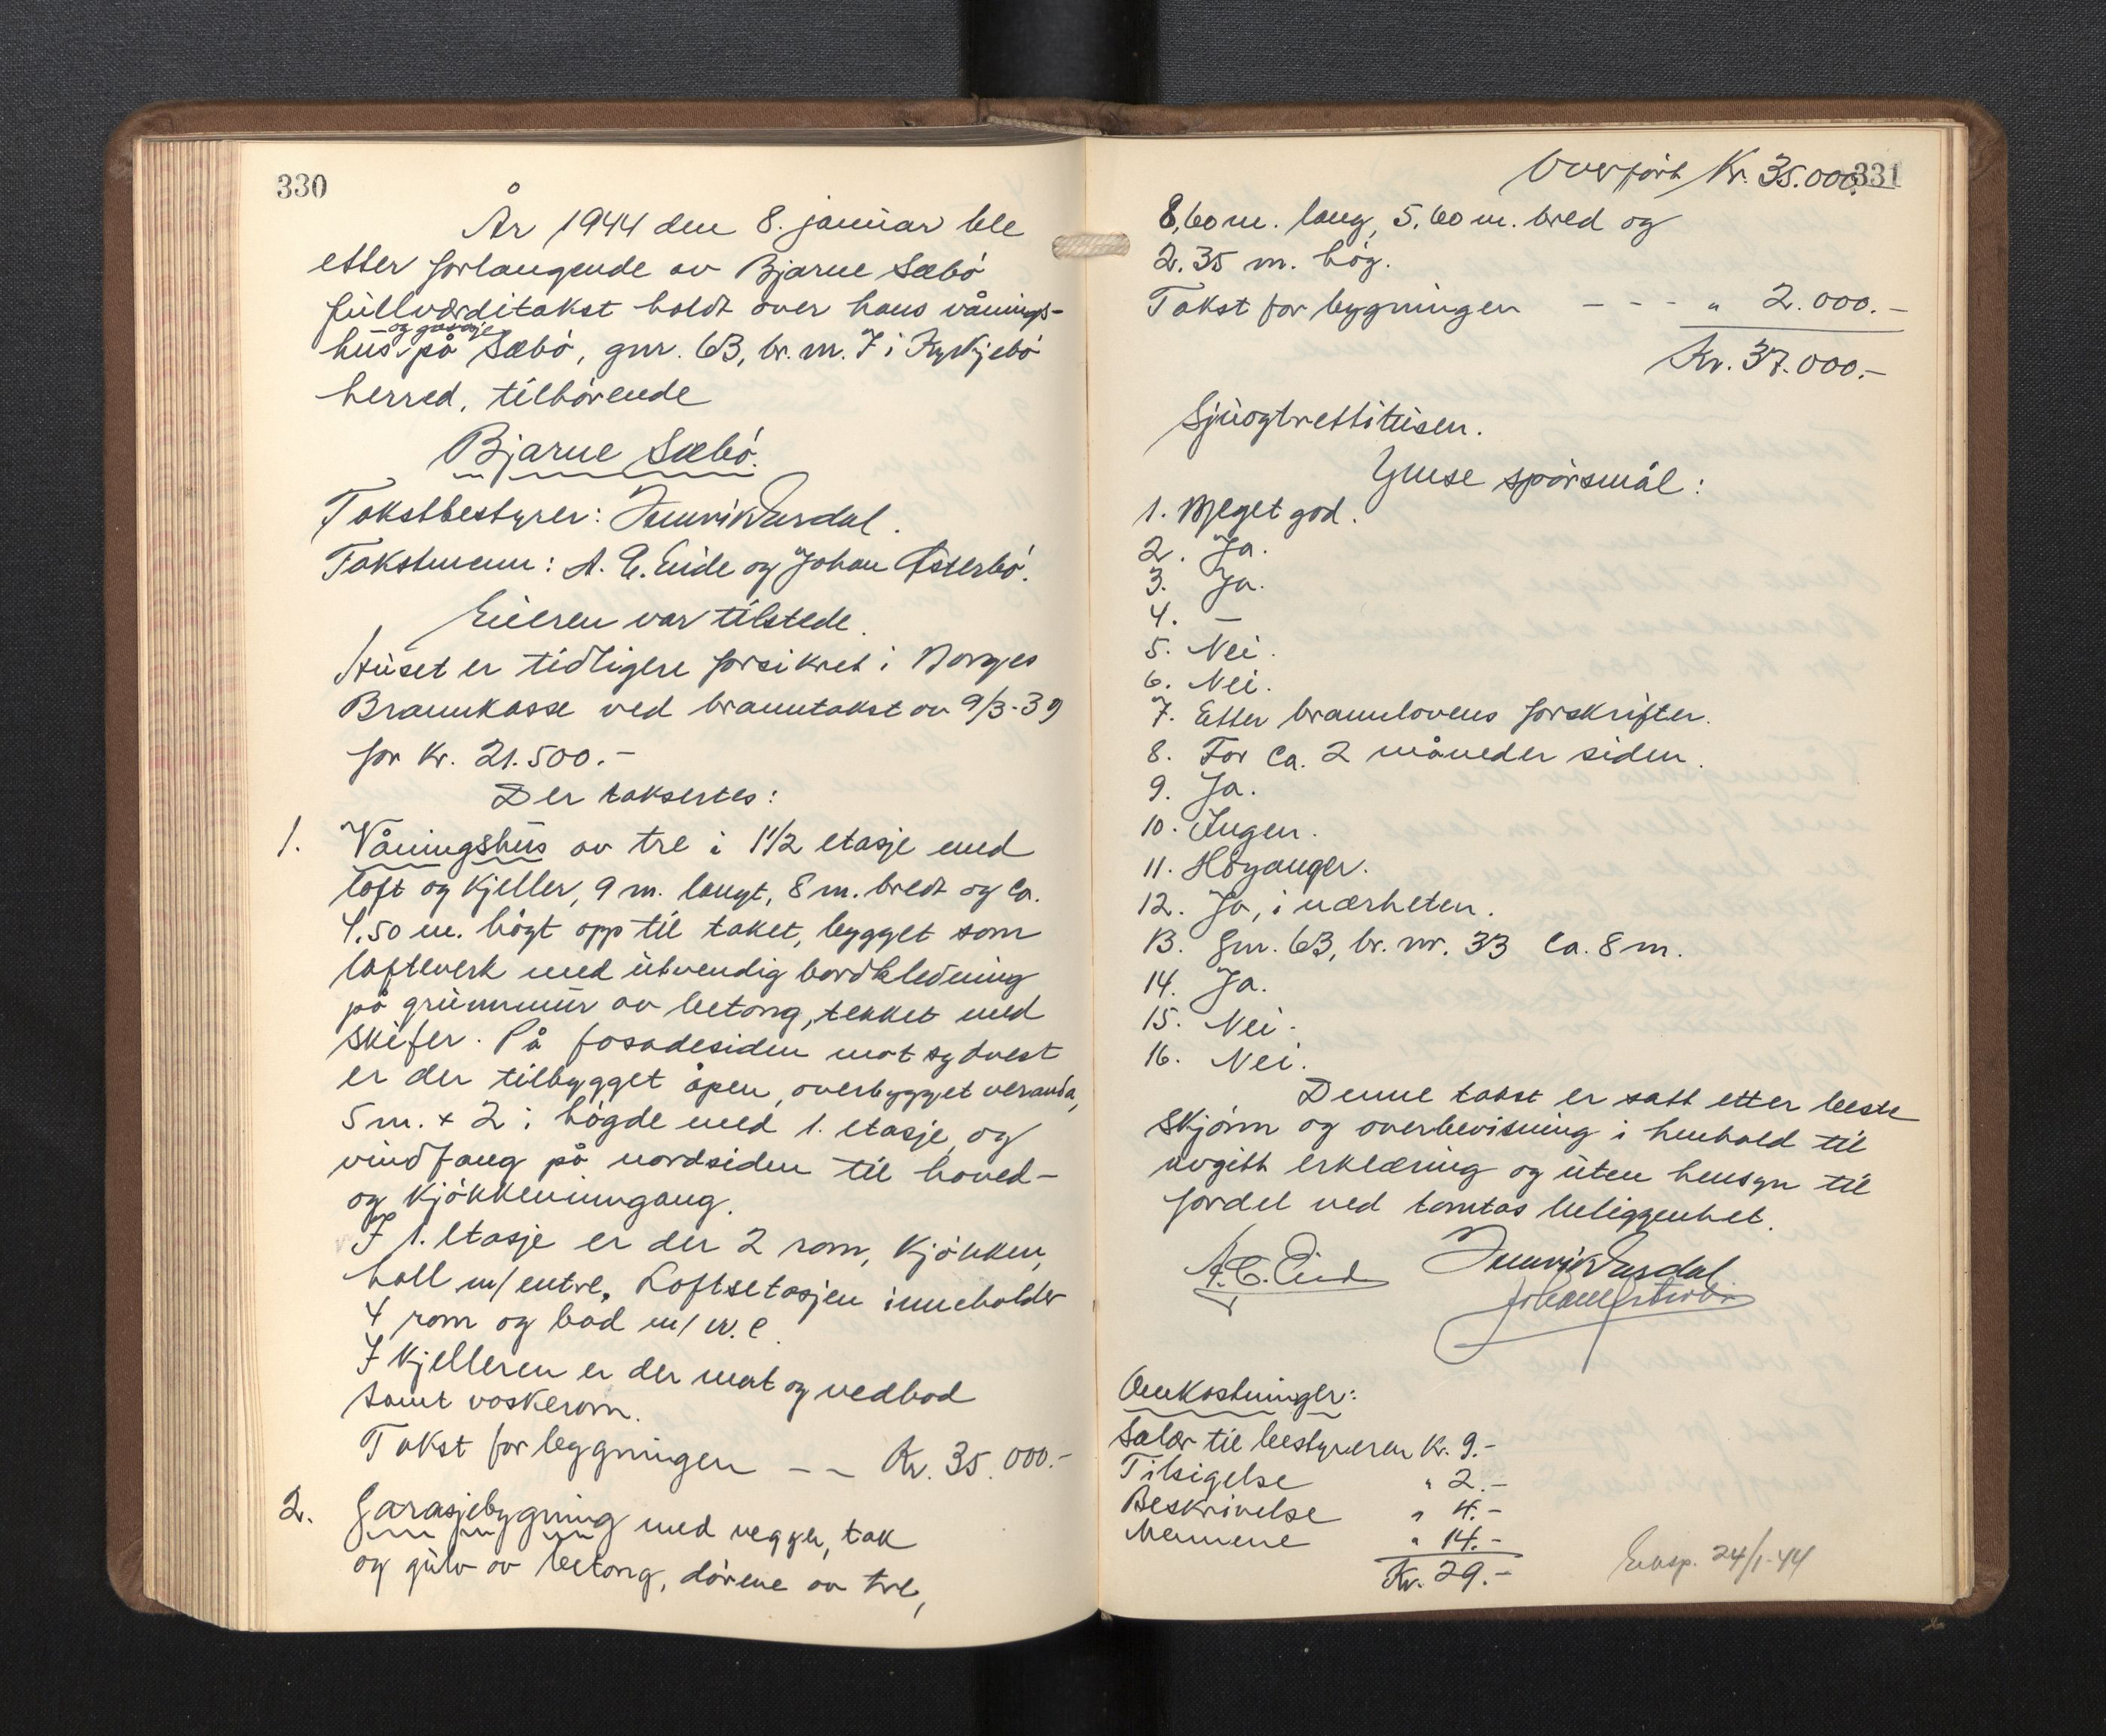 330
År 1944 den 8. januar ble
etter forlangende av Bjarne Sæbó
fullverditakst holdt over hans vånings-
og garasje
hus på Sæbó, gnr. 63, br. nr. 7 i Kyrkjebó
herred, tilhórende
Bjarne Sæbó.
Takstbestyrer: Henrik Vardal.
Takstmenn: A. E. Eide og Johan Østerbó.
Eieren var tilstede.
Huset er tidligere forsikret i Norges
Brannkasse ved branntakst av 9/3-39
for Kr. 21.500.-
Der taksertes:
1. Våningshus av tre i 1 1/2 etasje med
loft og kjeller, 9 m. langt, 8 m. bredt og ca.
4.50 m. hógt opp til taket, bygget som
lafteverk med utvendig bordkledning
på grunnmur av betong, tekket med
skifer. På fasadesiden mot sydvest
er der tilbygget åpen, overbygget veranda,
5 m. x 2 i hógde med 1. etasje, og
vindfang på nordsiden til hoved-
og kjókkeninngang.
I 1. etasje er der 2 rom, kjókken,
hall m/ entre. Loftsetasjen inneholder
4 rom og bad m/ w.c.
I kjelleren er der mat og vedbod
samt vaskerom.
Takst for bygningen - - Kr. 35.000.-
2. Garasjebygning med vegger, tak
og gulv av betong, dórene av tre,
Overfórt Kr. 35.000.-
331
8,60 m. lang, 5.60 m. bred og
2.35 m. hóg.
Takst for bygningen - - - " 2.000.-
Kr. 37.000.-
Sjuogtrettitusen.
Ymse spórsmål:
1. Meget god.
2. Ja.
3. Ja.
4. -
5. Nei.
6. Nei.
7. Etter brannlovens forskrifter.
8. For ca. 2 måneder siden.
9. Ja.
10. Ingen.
11. Hóyanger.
12. Ja, i nærheten.
13. Gnr. 63, br. nr. 33 ca. 8 m.
14. Ja.
15. Nei.
16. Nei.
Denne takst er satt etter beste
skjónn og overbevisning i henhold til
avgitt erklæring og uten hensyn til
fordel ved tomtas beliggenhet.
A. E. Eide Henrik Vardal
Johan Østerbó
Omkostninger:
Salær til bestyreren Kr. 9.-
Tilsigelse " 2.-
Beskrivelse " 4.-
Mennene " 14.-
Kr. 29.-
Eksp. 24/1-44